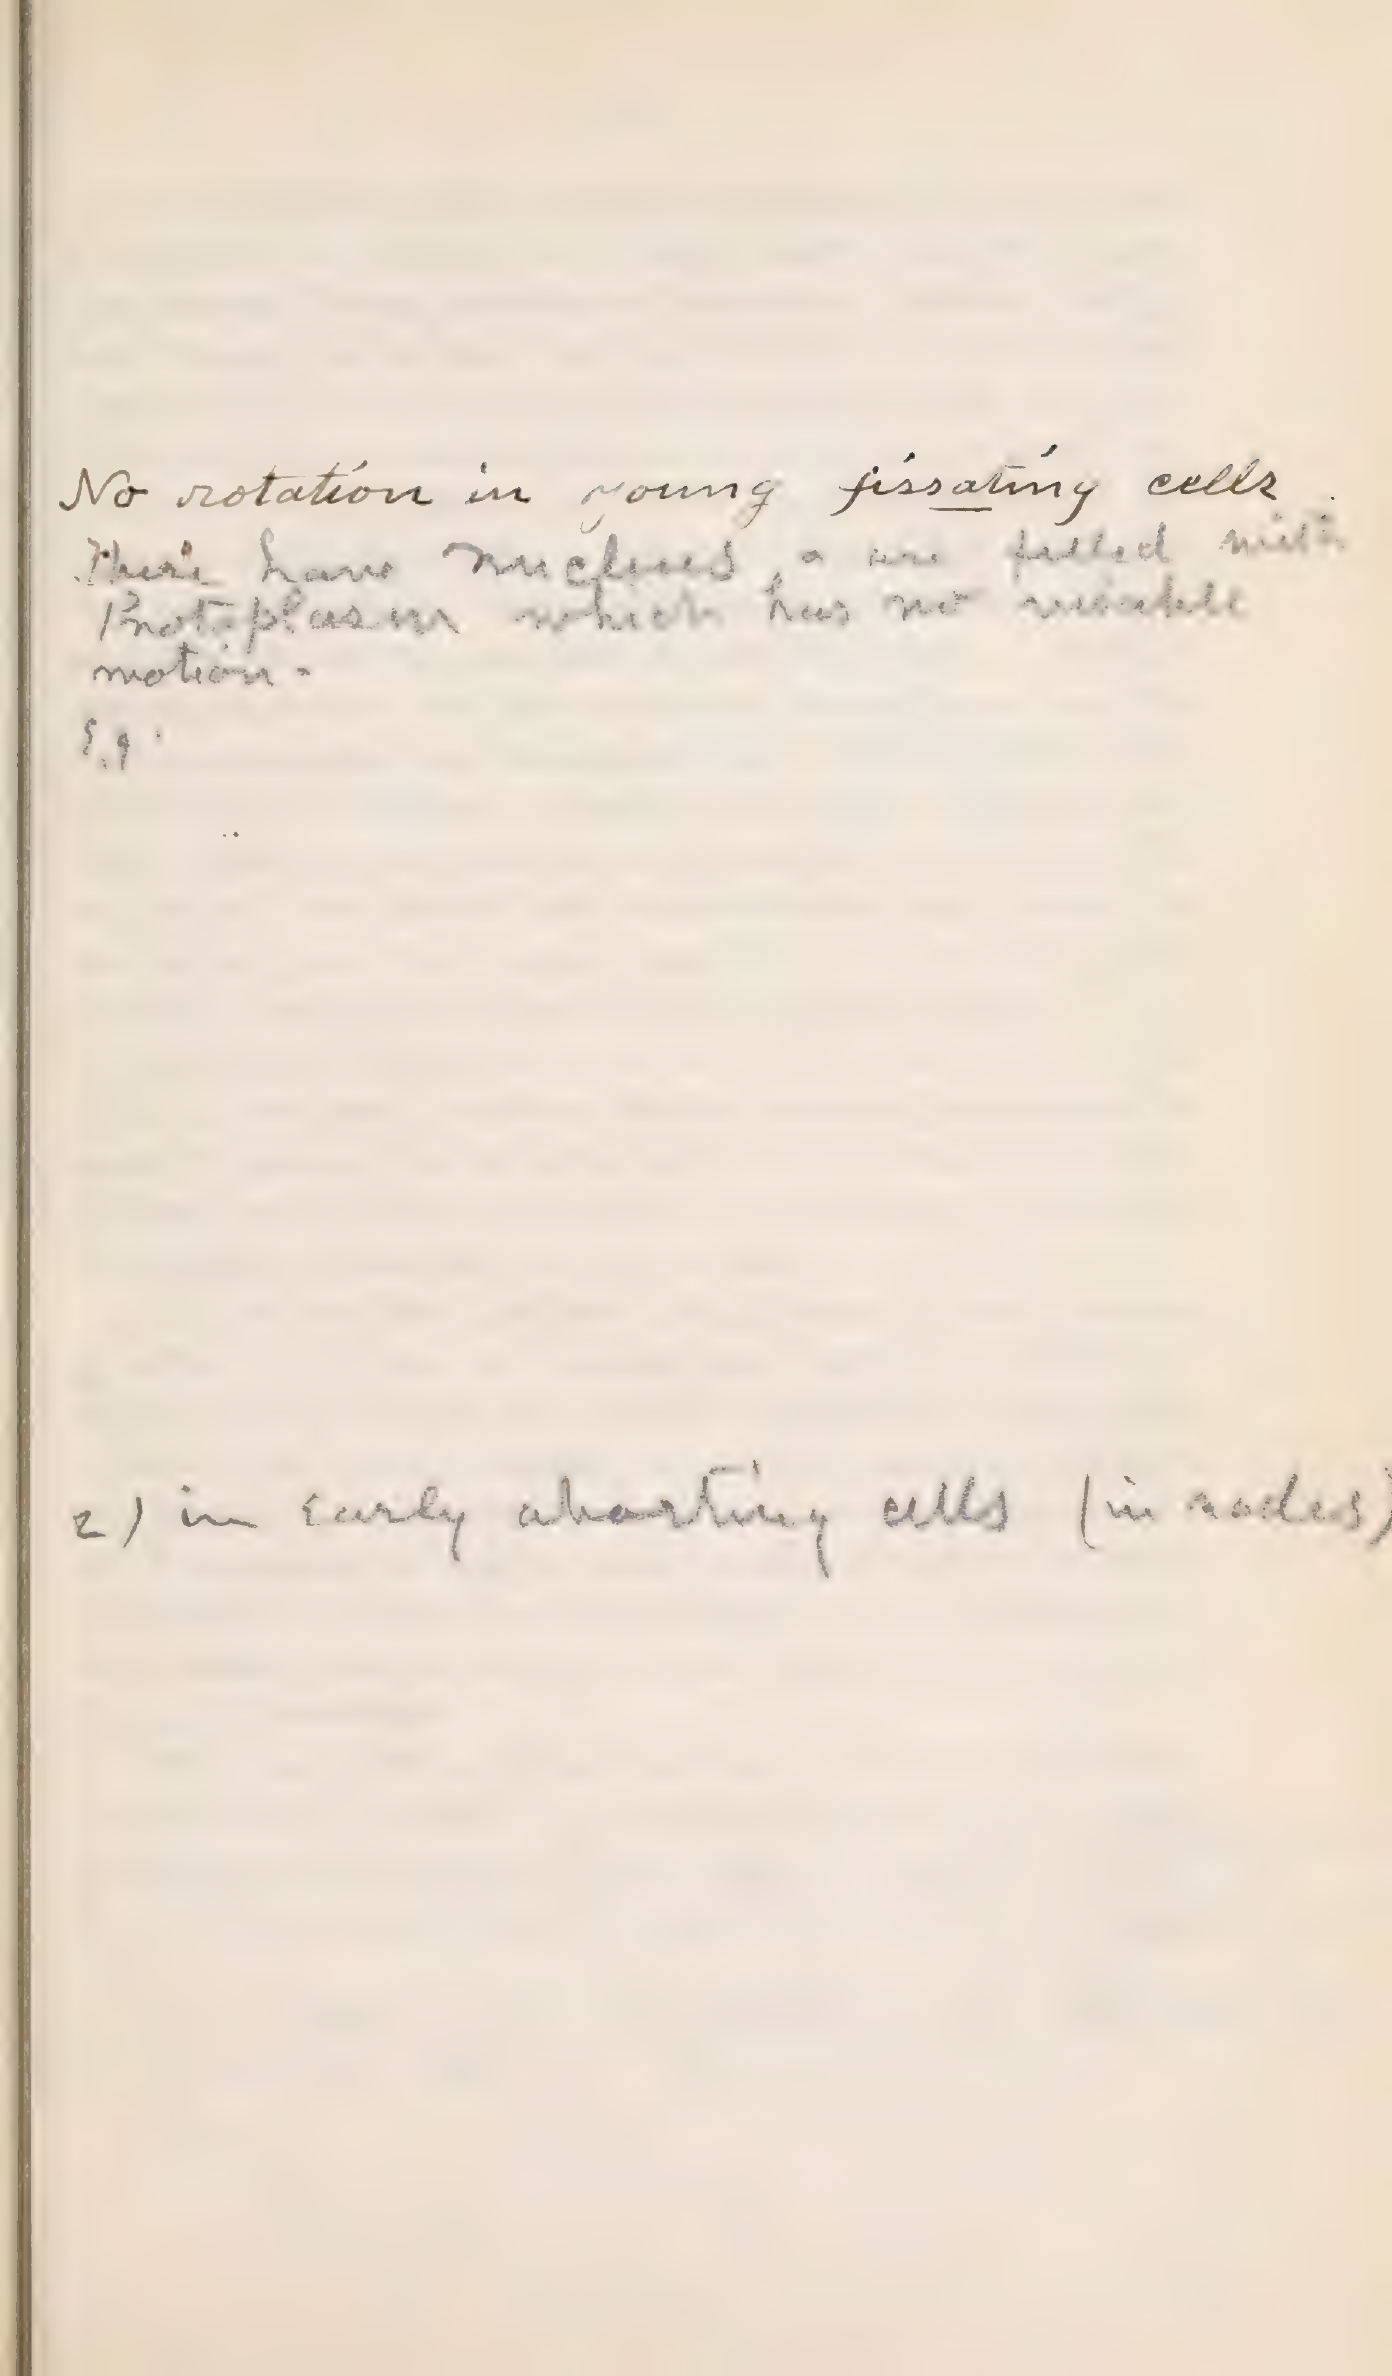 No rotation in young fissating cells.
These have nucleus, & are filled with
Protoplasm which has no visible
motion -
E.g.
2) in early aborting cells (in nodes)